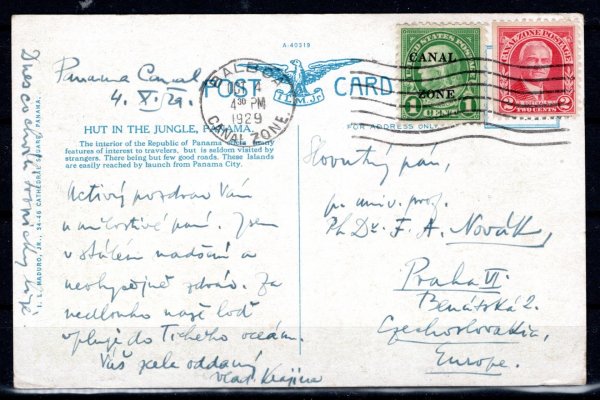 A-40319
POST CARD
I.L.M. Jr.
BALBOA
OCT 4
4 30 PM
1929
CANAL ZONE.
UNITED STATES POSTAGE
CANAL
ZONE
1 CENT 1
CANAL ZONE POSTAGE
2 TWO CENTS 2
FOR ADDRESS ONLY
Panama Canal
4. X. 29.
HUT IN THE JUNGLE, PANAMA.
The interior of the Republic of Panama has many
features of interest to travelers, but is seldom visited by
strangers. There being but few good roads. These Islands
are easily reached by launch from Panama City.
Uctivý pozdrav Vám
a milostivé paní. Jsem
v stálém nadšení a
neobyčejně zdráv. Za
nedlouho naše loď
vpluje do Tichého oceánu.
Váš zcela oddaný
Vlad. Krajina
Slovutný pán,
p. univ. prof.
Ph Dr. F. A. Novák,
Praha VI
Benátská 2.
Czechoslovakia,
Europe.
I. L. MADURO, JR., 34-46 CATHEDRAL SQUARE, PANAMA.
Dnes